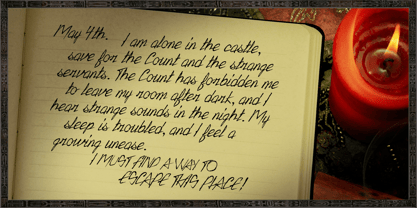 May 4th. I am alone in the castle,
save for the Count and the strange
servants. The Count has forbidden me
to leave my room after dark, and I
hear strange sounds in the night. My
sleep is troubled, and I feel a
growing unease.
I MUST FIND A WAY TO
ESCAPE THIS PLACE!